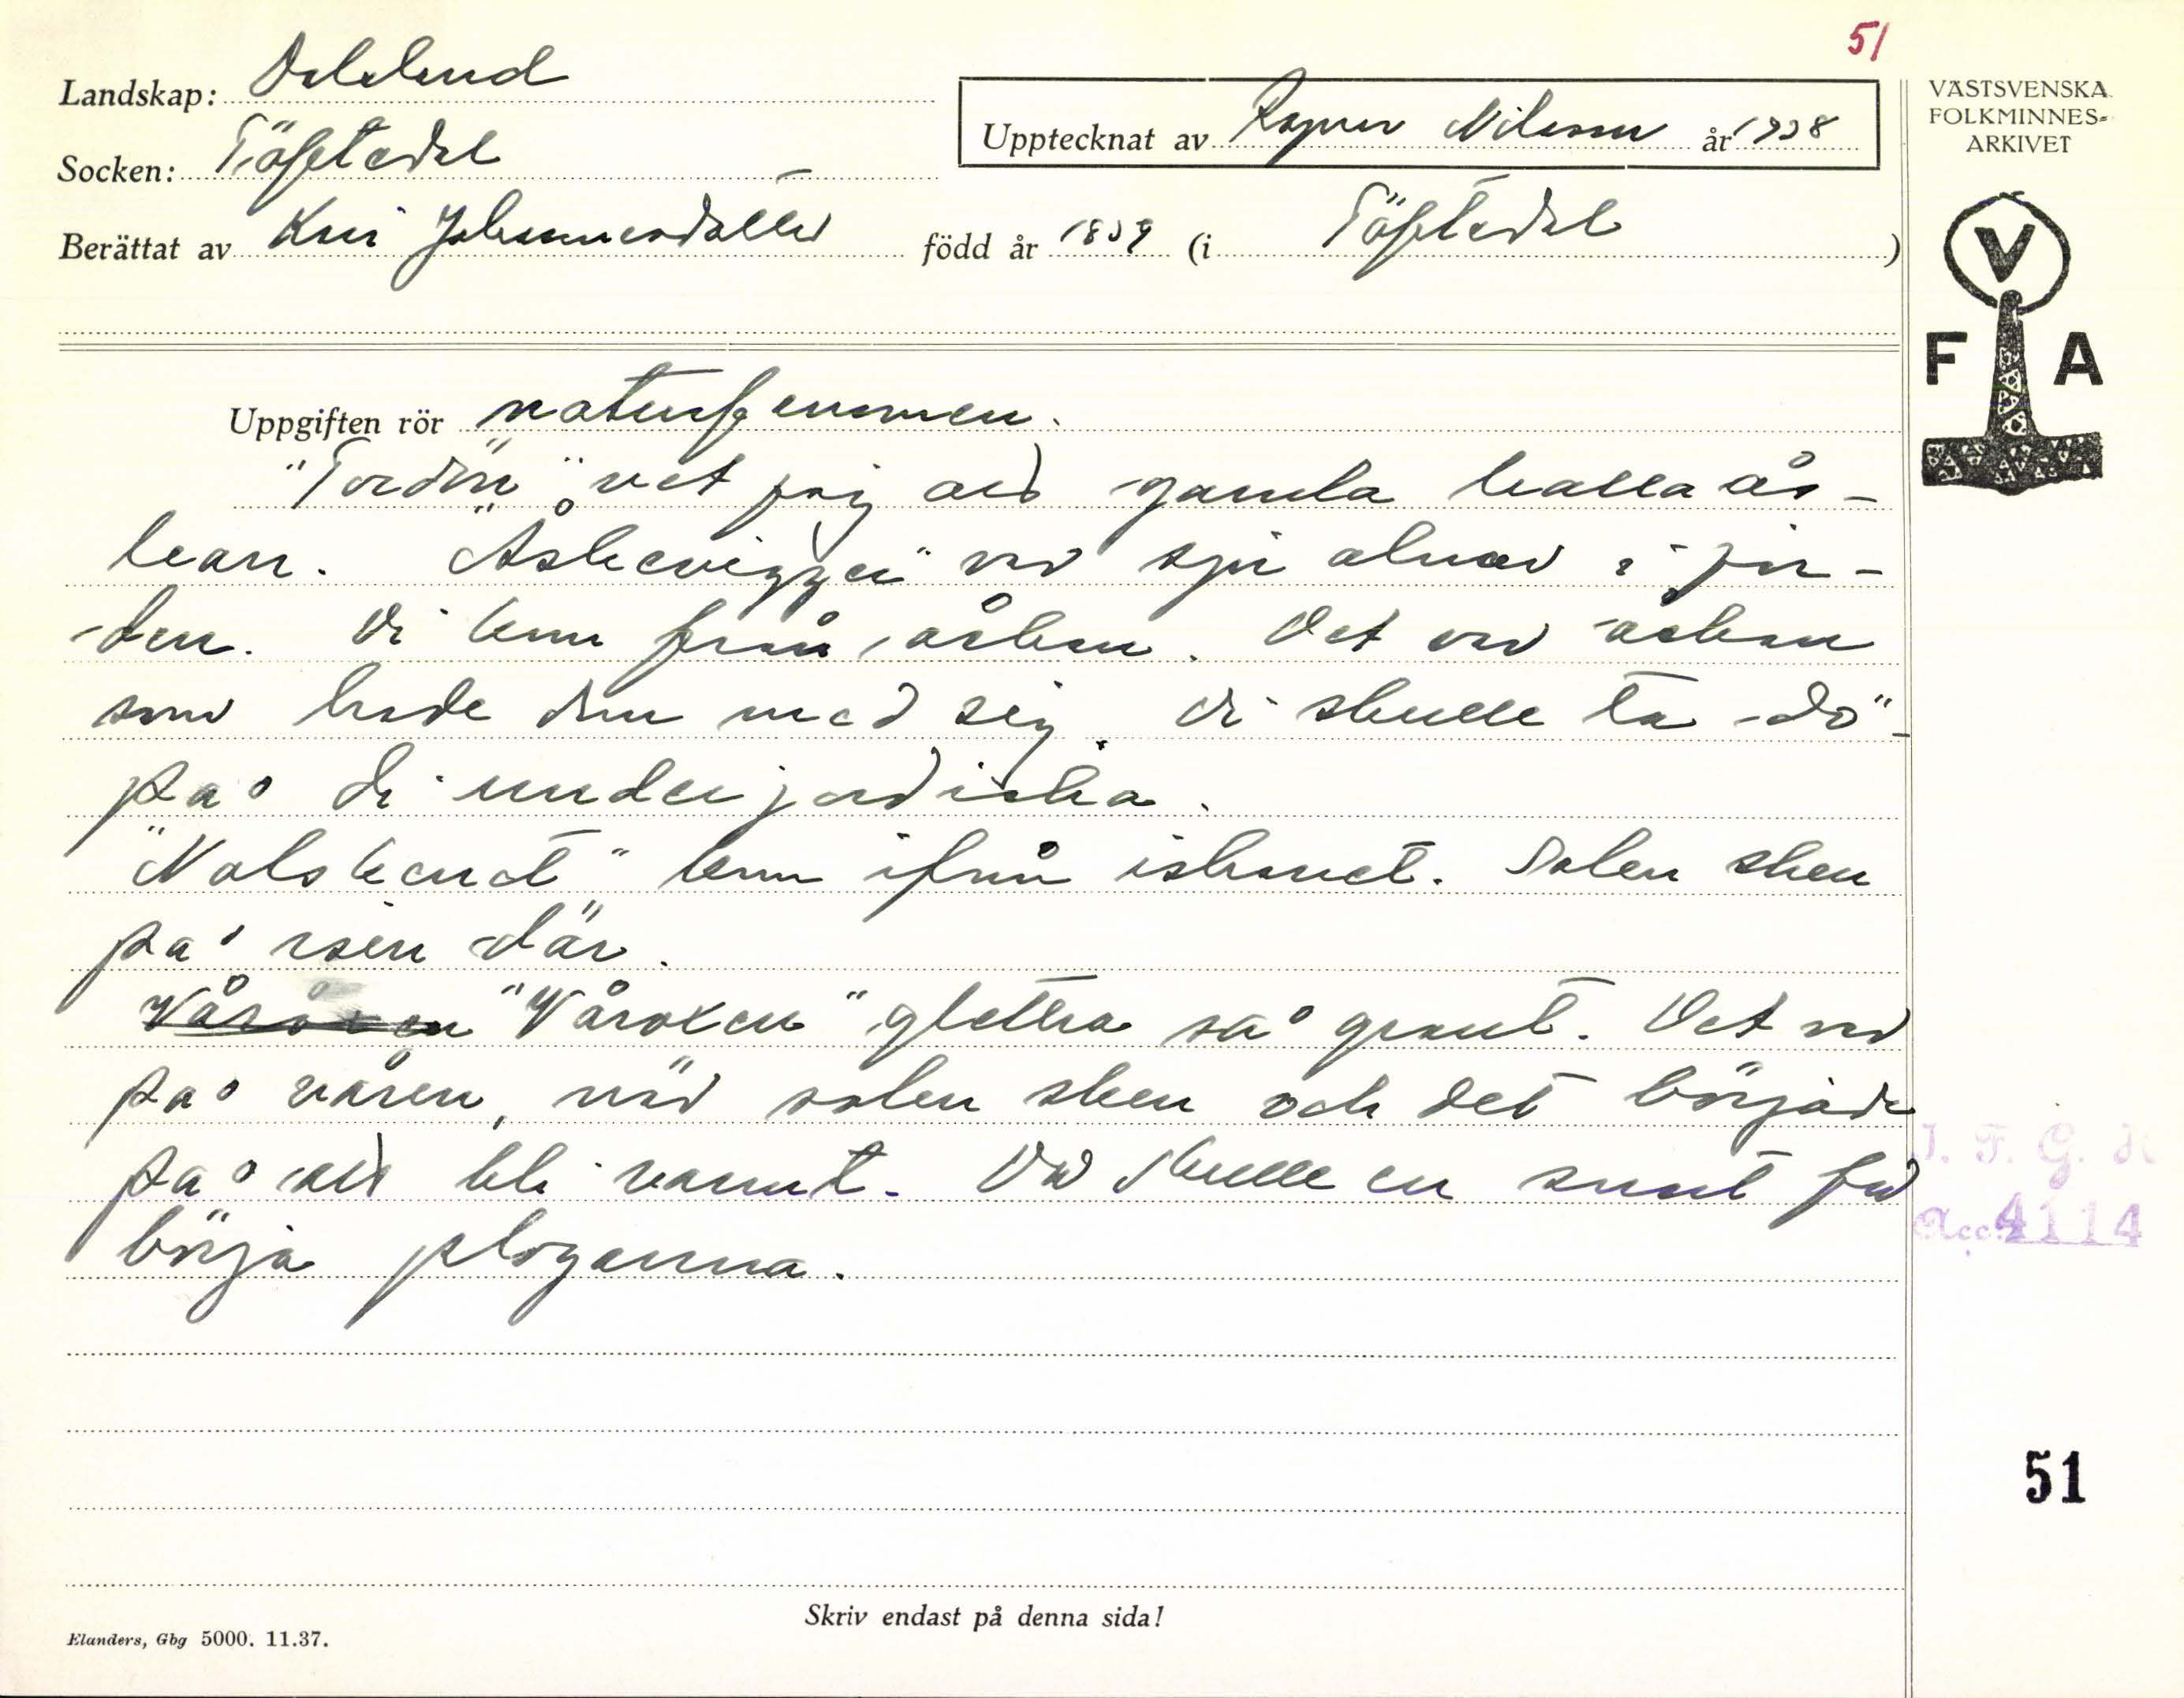 51
Landskap: Dalsland
Upptecknat av Ragnar Nilsson år 1938
VÄSTSVENSKA
FOLKMINNES-
ARKIVET
Socken: Töftedal
Berättat av Kari Johannesdotter född år 1839 (i Töftedal)
V
F A
Uppgiften rör naturfenomen.
"Tordön" vet jag att gamla kalla ås-
kan. "Åskeviggen" var sju alnar i jor-
den. Di kom från åskan. Det var åskan
som hade dem med sig. Di skulle ta dö
på di underjordiska.
"Nolskenet" kom ifrån ishavet. Solen sken
på isen där.
Våroxen "Våroxen" glettra så grant. Det var
på våren, när solen sken och det började
på att bli varmt. Då skulle en snart få
börja plogarna.
I. F. G. H
Acc. 4114
51
Skriv endast på denna sida!
Elanders, Gbg 5000. 11.37.